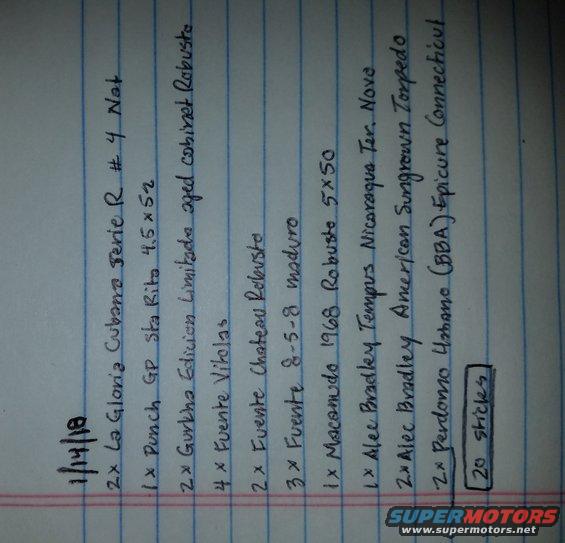 1/14/18
2x La Gloria Cubana Serie R # 4 Nat
1x Punch GP Sta Rita 4.5 x 52
2x Gurkha Edicion Limitada aged cabinet Robusto
4x Fuente Vitolas
2x Fuente Chateau Robusto
3x Fuente 8-5-8 maduro
1x Macanudo 1968 Robusto 5x50
1x Alec Bradley Tempus Nicaragua Ter. Novo
2x Alec Bradley American Sungrown Torpedo
2x Perdomo Habano (BBA) Epicure Connecticut
20 sticks
SUPERMOTORS
www.supermotors.net